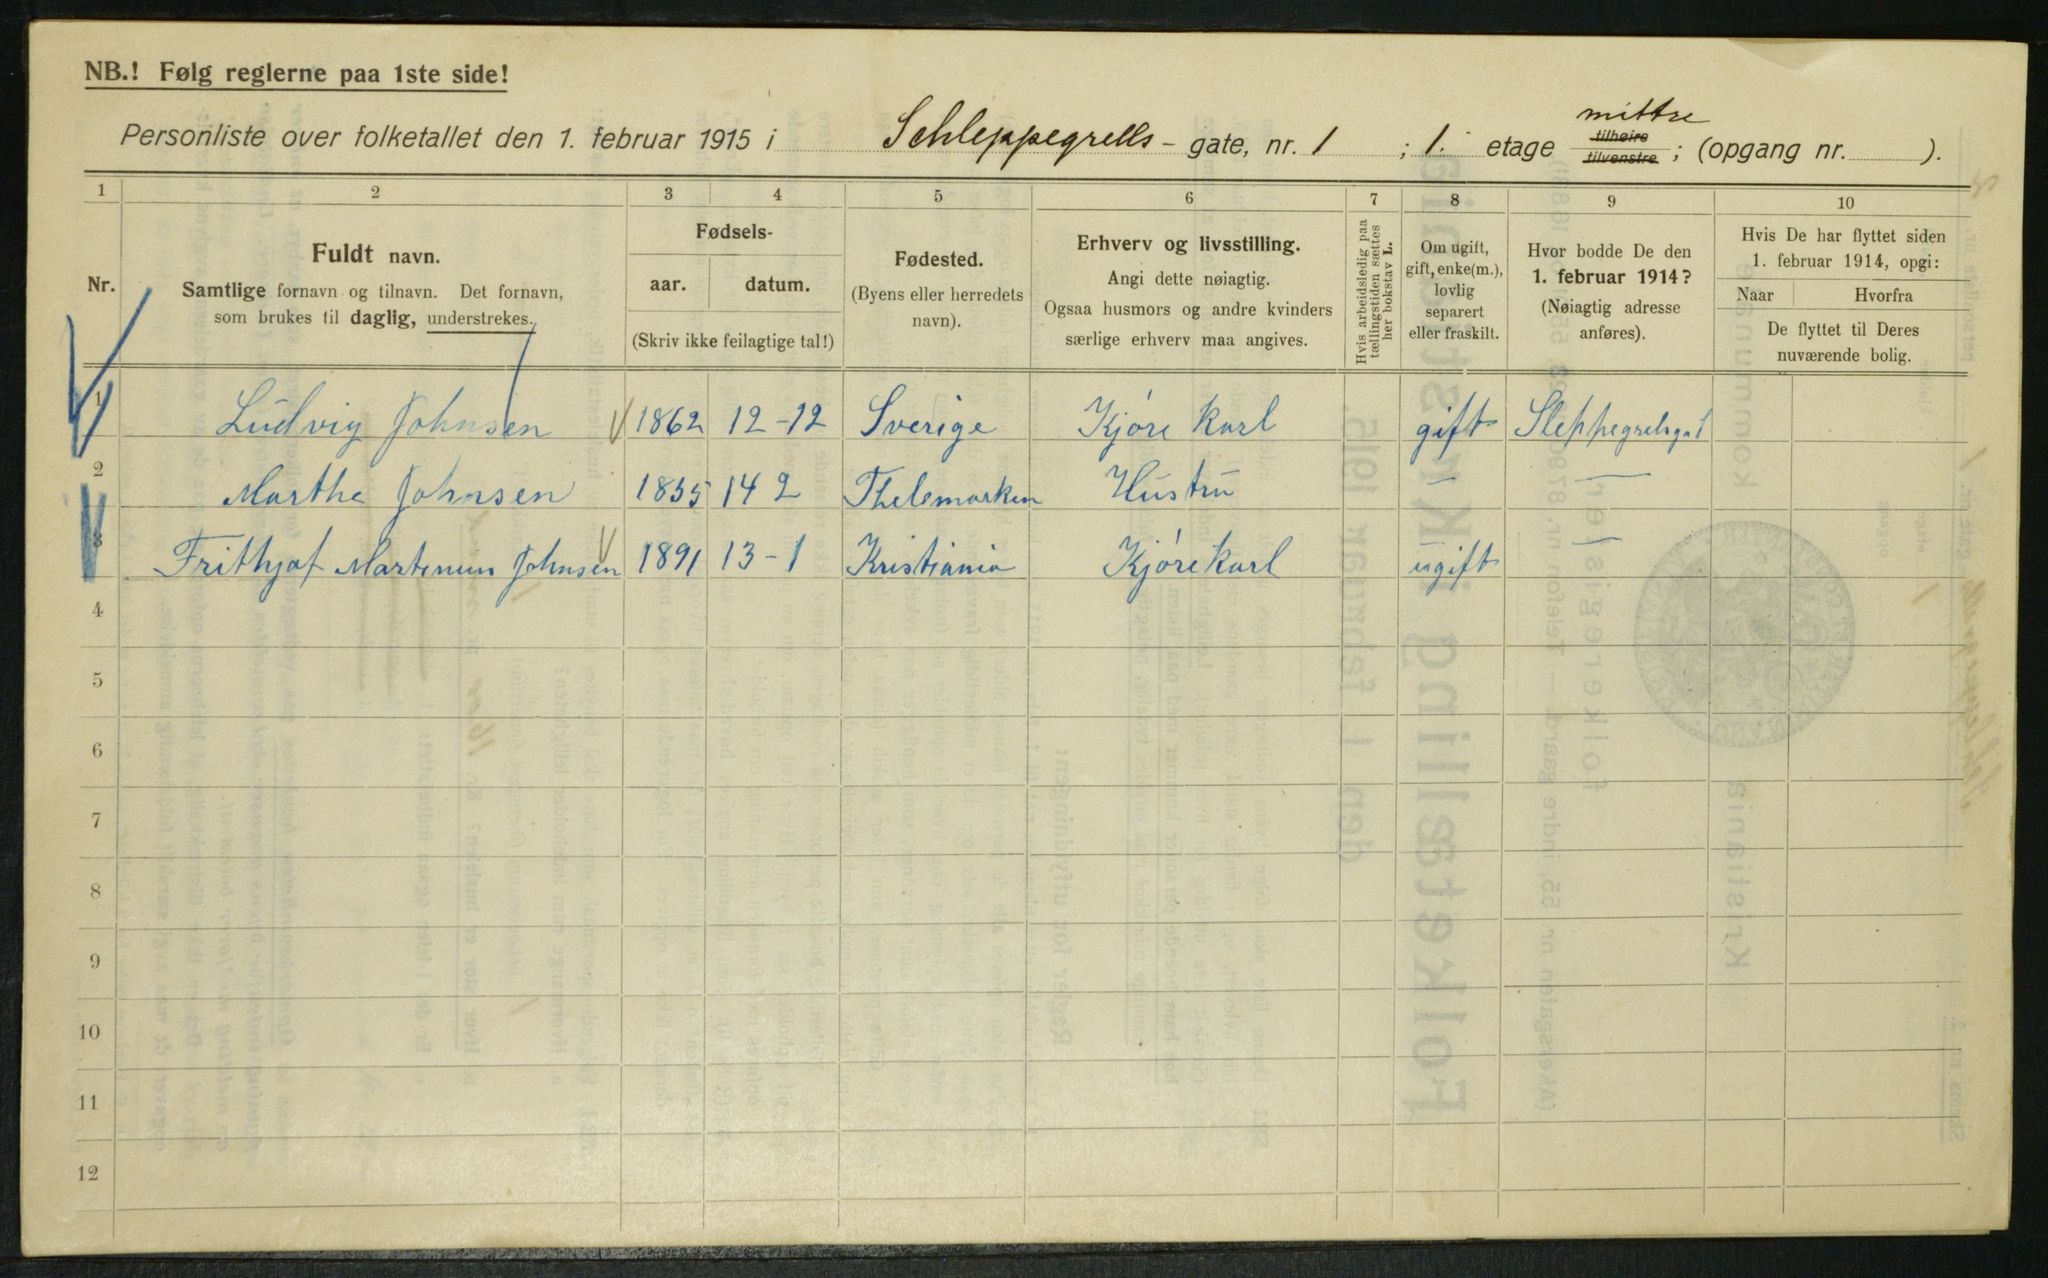 NB.! Følg reglerne paa 1ste side!
mittre
Personliste over folketallet den 1. februar 1915 i Schleppegrells - gate, nr. 1 ; 1. etage tilhøire tilvenstre ; (opgang nr. ).
1 2 3 4 5 6 7 8 9 10
Nr.
Fuldt navn.
Samtlige fornavn og tilnavn. Det fornavn,
som brukes til daglig, understrekes.
Fødsels-
aar. datum.
(Skriv ikke feilagtige tal!)
Fødested.
(Byens eller herredets
navn).
Erhverv og livsstilling.
Angi dette nøiagtig.
Ogsaa husmors og andre kvinders
særlige erhverv maa angives.
Hvis arbeidsledig paa
tællingstiden sættes
her bokstav L.
Om ugift,
gift, enke(m.),
lovlig
separert
eller fraskilt.
Hvor bodde De den
1. februar 1914?
(Nøiagtig adresse
anføres).
Hvis De har flyttet siden
1. februar 1914, opgi:
Naar Hvorfra
De flyttet til Deres
nuværende bolig.
1 Ludvig Johnsen 1862 12-12 Sverige Kjøre karl gift Sleppegrelsgat 1
2 Marthe Johnsen 1855 14 2 Thelemarken Hustru — —
3 Frithjof Martinius Johnsen 1891 13-1 Kristiania Kjørekarl ugift
4
5
6
7
8
9
10
11
12